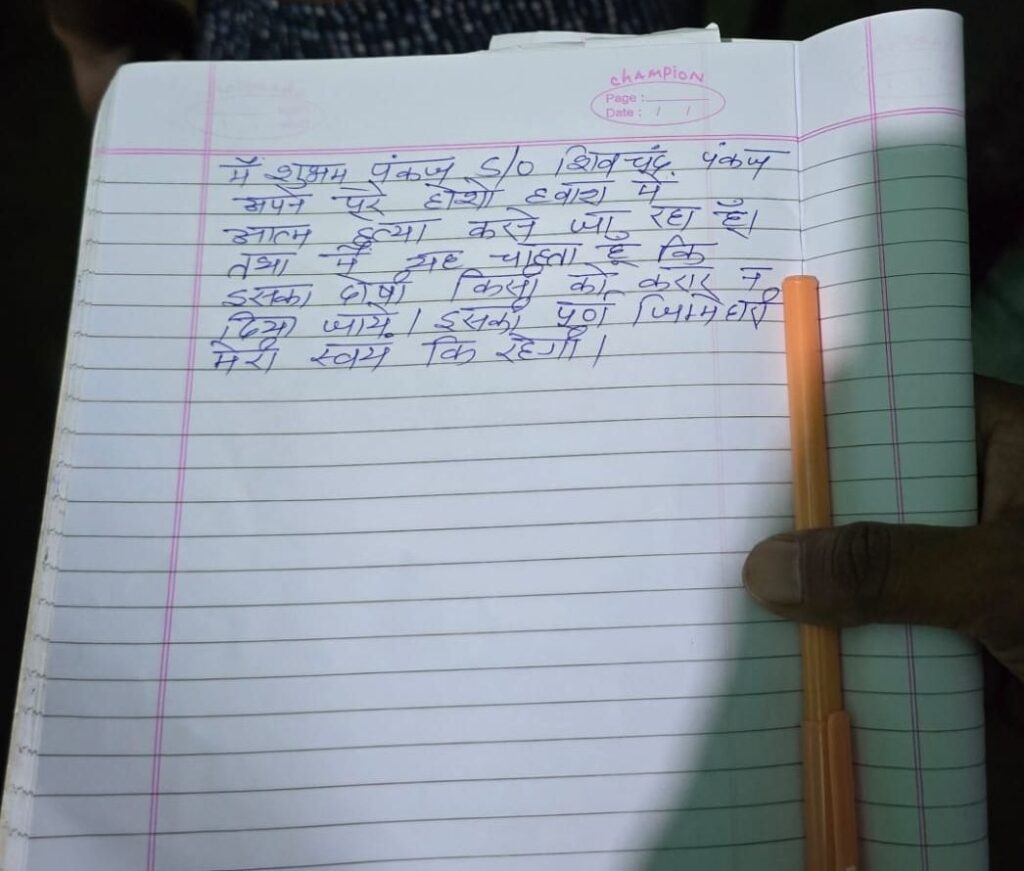 CHAMPION
Page :
Date : / /
मैं शुभम पंकज S/O शिव चंद्र पंकज
अपने पूरे होशो हवाश में
आत्म हत्या करने जा रहा हूँ।
तथा मैं यह चाहता हूँ कि
इसका दोषी किसी को करार न
दिया जाये। इसकी पूर्ण जिम्मेदारी
मेरी स्वयं कि रहेगी।